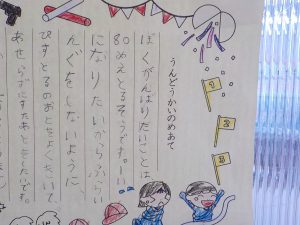 うんどうかいのめあて
ぼくがんばりたいことは
80めえとるそうです。一い
になりたいからふらい
んぐをしないように、
ぴすとるのおとをよくきいて
あせらずにすたあとをしたいです。
1
2
3